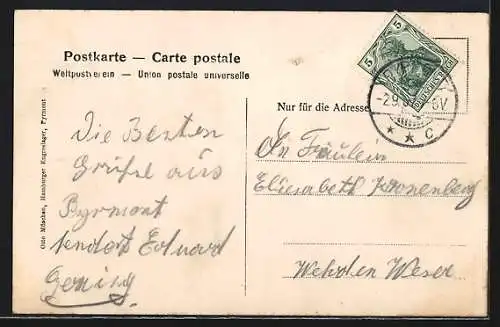 Postkarte — Carte postale
Weltpostverein — Union postale universelle
Nur für die Adresse
5 5
DEUTSCHES
-2.9. 8V
* * C
Otto Mitschen, Hamburger Engroslager, Pyrmont
Die Besten
Grüße aus
Pyrmont
sendet Eduard
An Fräulein
Elisabeth Kronenberg
Wehrden Weser